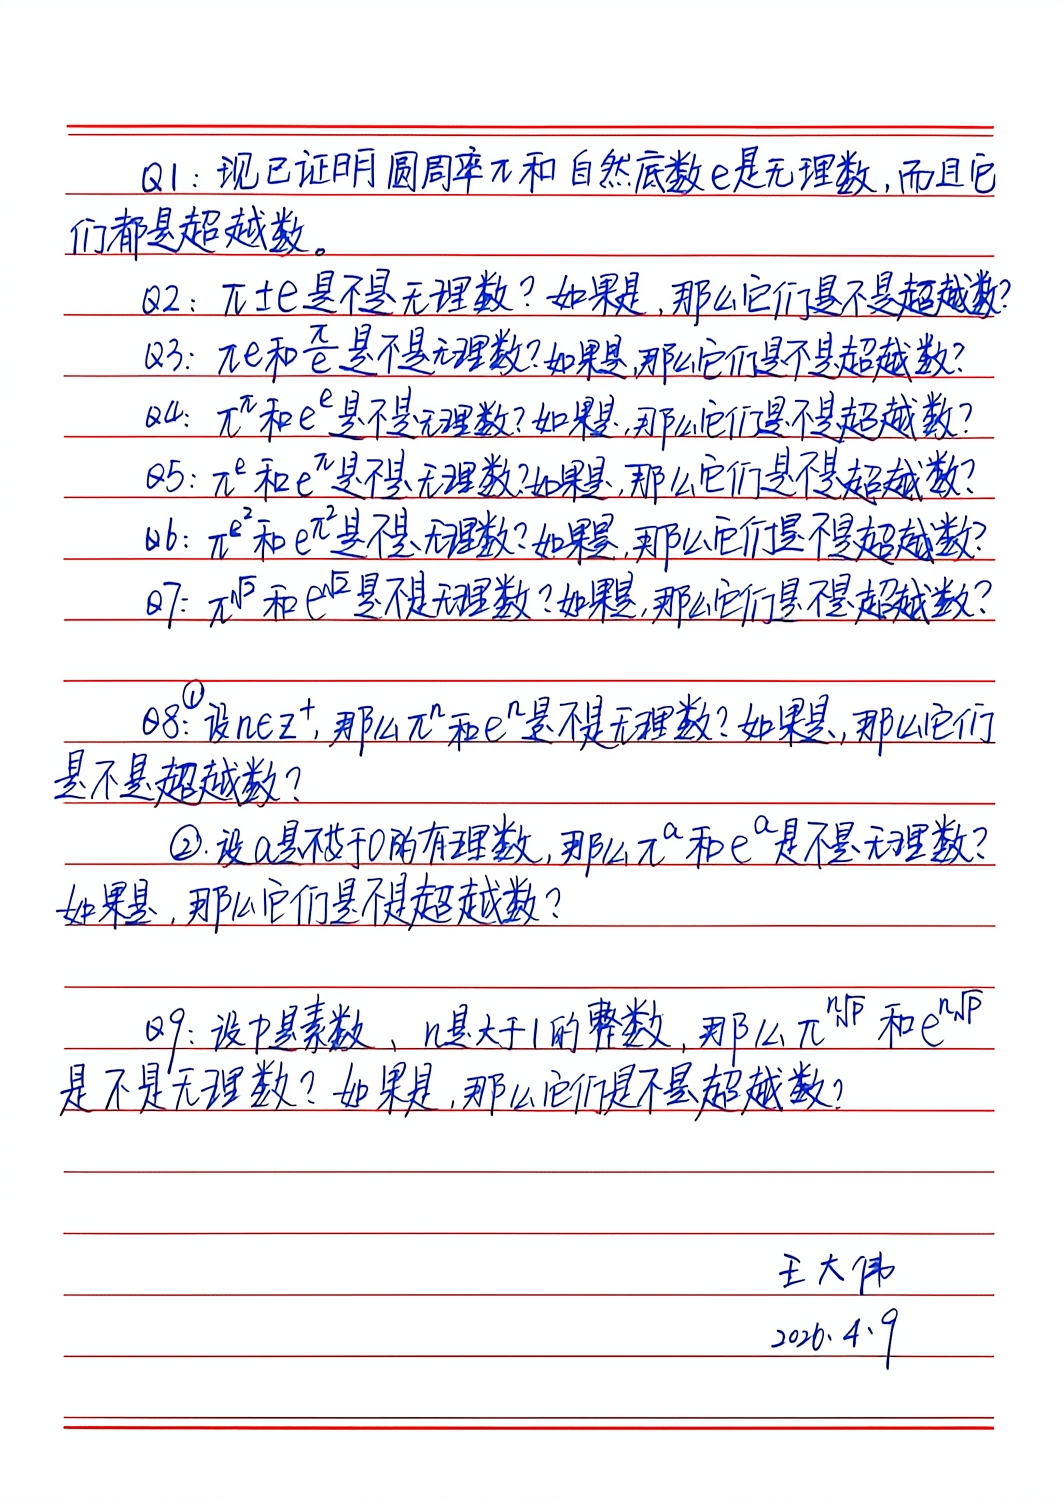 Q1：现已证明圆周率π和自然底数e是无理数，而且它
们都是超越数。
Q2：π±e是不是无理数？如果是，那么它们是不是超越数？
Q3：πe和π/e是不是无理数？如果是，那么它们是不是超越数？
Q4：π^π和e^e是不是无理数？如果是，那么它们是不是超越数？
Q5：π^e和e^π是不是无理数？如果是，那么它们是不是超越数？
Q6：π^e²和e^π²是不是无理数？如果是，那么它们是不是超越数？
Q7：π^√2和e^√2是不是无理数？如果是，那么它们是不是超越数？
Q8：①设n∈Z⁺，那么πⁿ和eⁿ是不是无理数？如果是，那么它们
是不是超越数？
②．设a是不等于0的有理数，那么π^a和e^a是不是无理数？
如果是，那么它们是不是超越数？
Q9：设p是素数、n是大于1的整数，那么π^ⁿ√p和e^ⁿ√p
是不是无理数？如果是，那么它们是不是超越数？
王大伟
2026.4.9